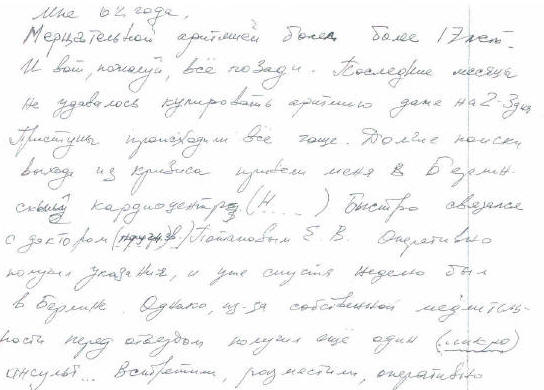 Мне 62 года.
Мерцательной аритмией болен более 17 лет.
И вот, пожалуй, всё позади. Последние месяца
не удавалось купировать аритмию даже на 2-3 дня
Приступы происходили всё чаще. Долгие поиски
выхода из кризиса привели меня в Берлин-
ский кардиоцентр (Н....) Быстро связался
с доктором Потаповым Е.В. Оперативно
получил указания, и уже спустя неделю был
в Берлине. Однако, из-за собственной медлитель-
ности перед отъездом получил ещё один (микро)
инсульт... Встретили, разместили, оперативно